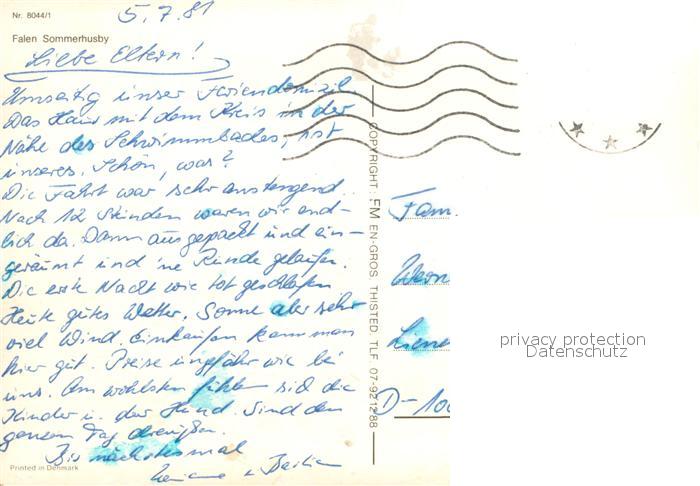 Nr. 8044/1
5.7.81
Falen Sommerhusby
Liebe Eltern!
Umseitig unser Feriendomizil.
Das Haus mit dem Kreis in der
Nähe des Schwimmbades, ist
unseres. Schön, was?
Die Fahrt war sehr anstengend.
Nach 12 Stunden waren wir end-
lich da. Dann ausgepackt und ein-
geräumt und 'ne Runde gelaufen.
Die erste Nacht wie tot geschlafen
Heute gutes Wetter. Sonne aber sehr
viel Wind. Einkaufen kann man
hier gut. Preise ungefähr wie bei
uns. Am wohlsten fühlen sich die
Kinder u. der Hund. Sind den
ganzen Tag draußen.
Bis nächstesmal
Printed in Denmark
COPYRIGHT: FM EN-GROS THISTED. TLF. 07-92 12 88
Fam.
Wern
Liene
D-100
privacy protection
Datenschutz